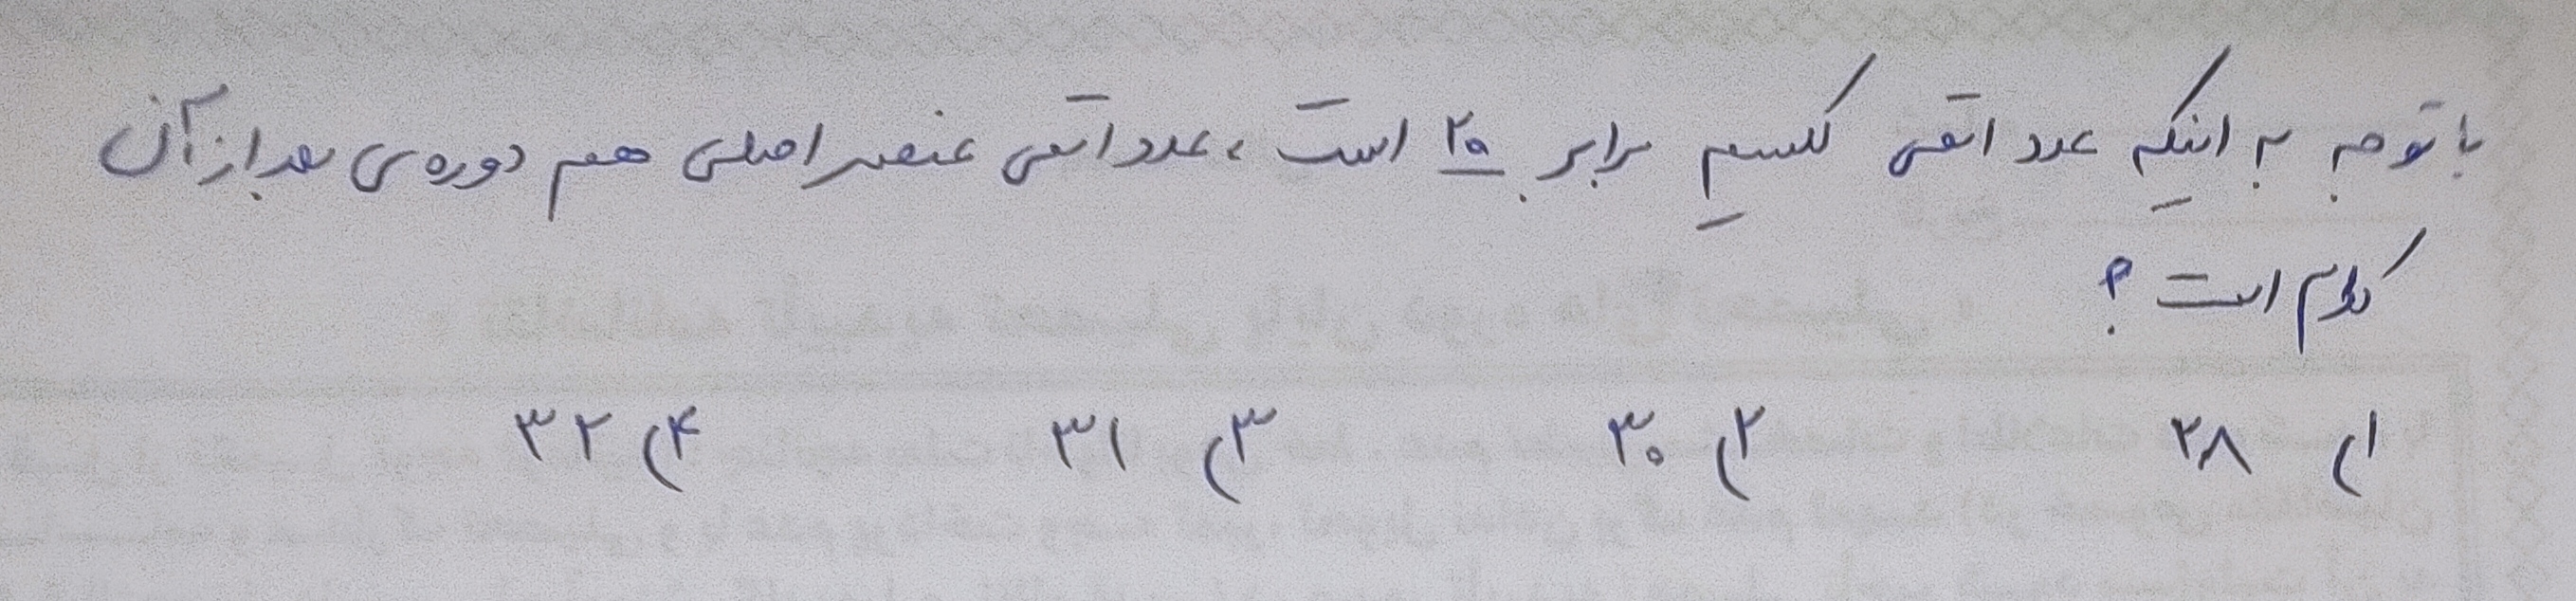 با توجه به اینکه عدد اتمی کلسیم برابر ۲۰ است، عدد اتمی عنصر اصلی هم دوره‌ی بعد از آن
کدام است؟
۱) ۲۸ ۲) ۳۰ ۳) ۳۱ ۴) ۳۲